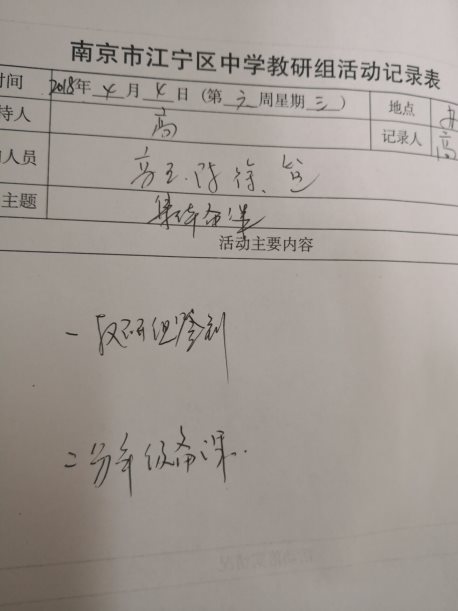 南京市江宁区中学教研组活动记录表
时间 2018年 4 月 4 日（第 六 周星期 三 ） 地点
持人 高 记录人 高
人员 高王、陈、徐、
主题 集体备课
活动主要内容
一 教研组签到
二 分年级备课.